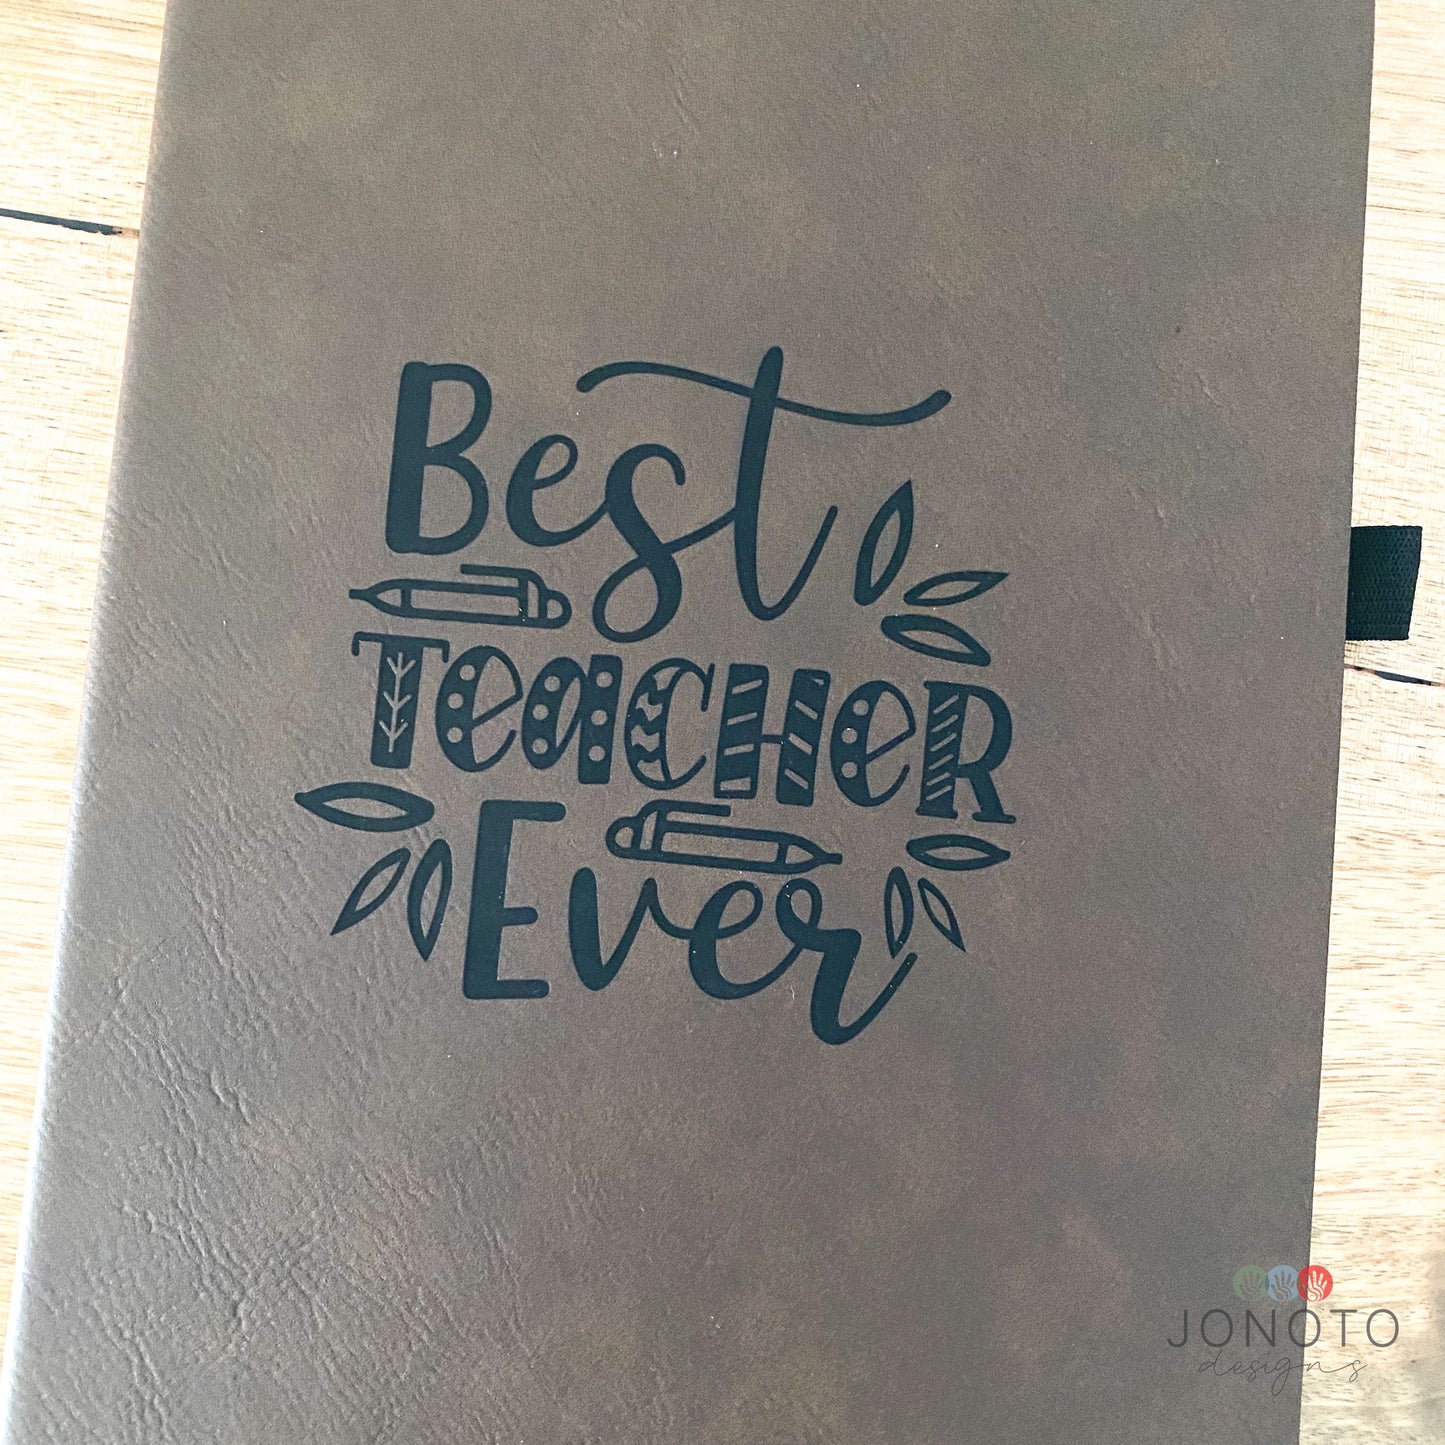 Best
TeacHeR
Ever
JONOTO
designs